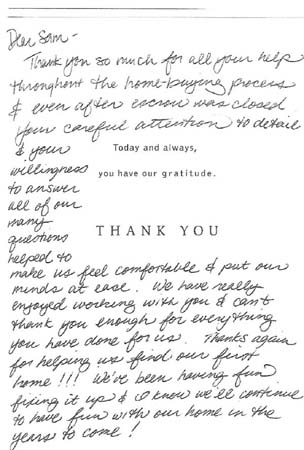 Dear Sam -
Thank you so much for all your help
throughout the home-buying process
& even after escrow was closed
your careful attention to detail
& your
Today and always,
willingness
you have our gratitude.
to answer
all of our
many
questions
THANK YOU
helped to
make us feel comfortable & put our
minds at ease. We have really
enjoyed working with you & can't
thank you enough for everything
you have done for us. Thanks again
for helping us find our first
home!!! We've been having fun
fixing it up & I know we'll continue
to have fun with our home in the
years to come!